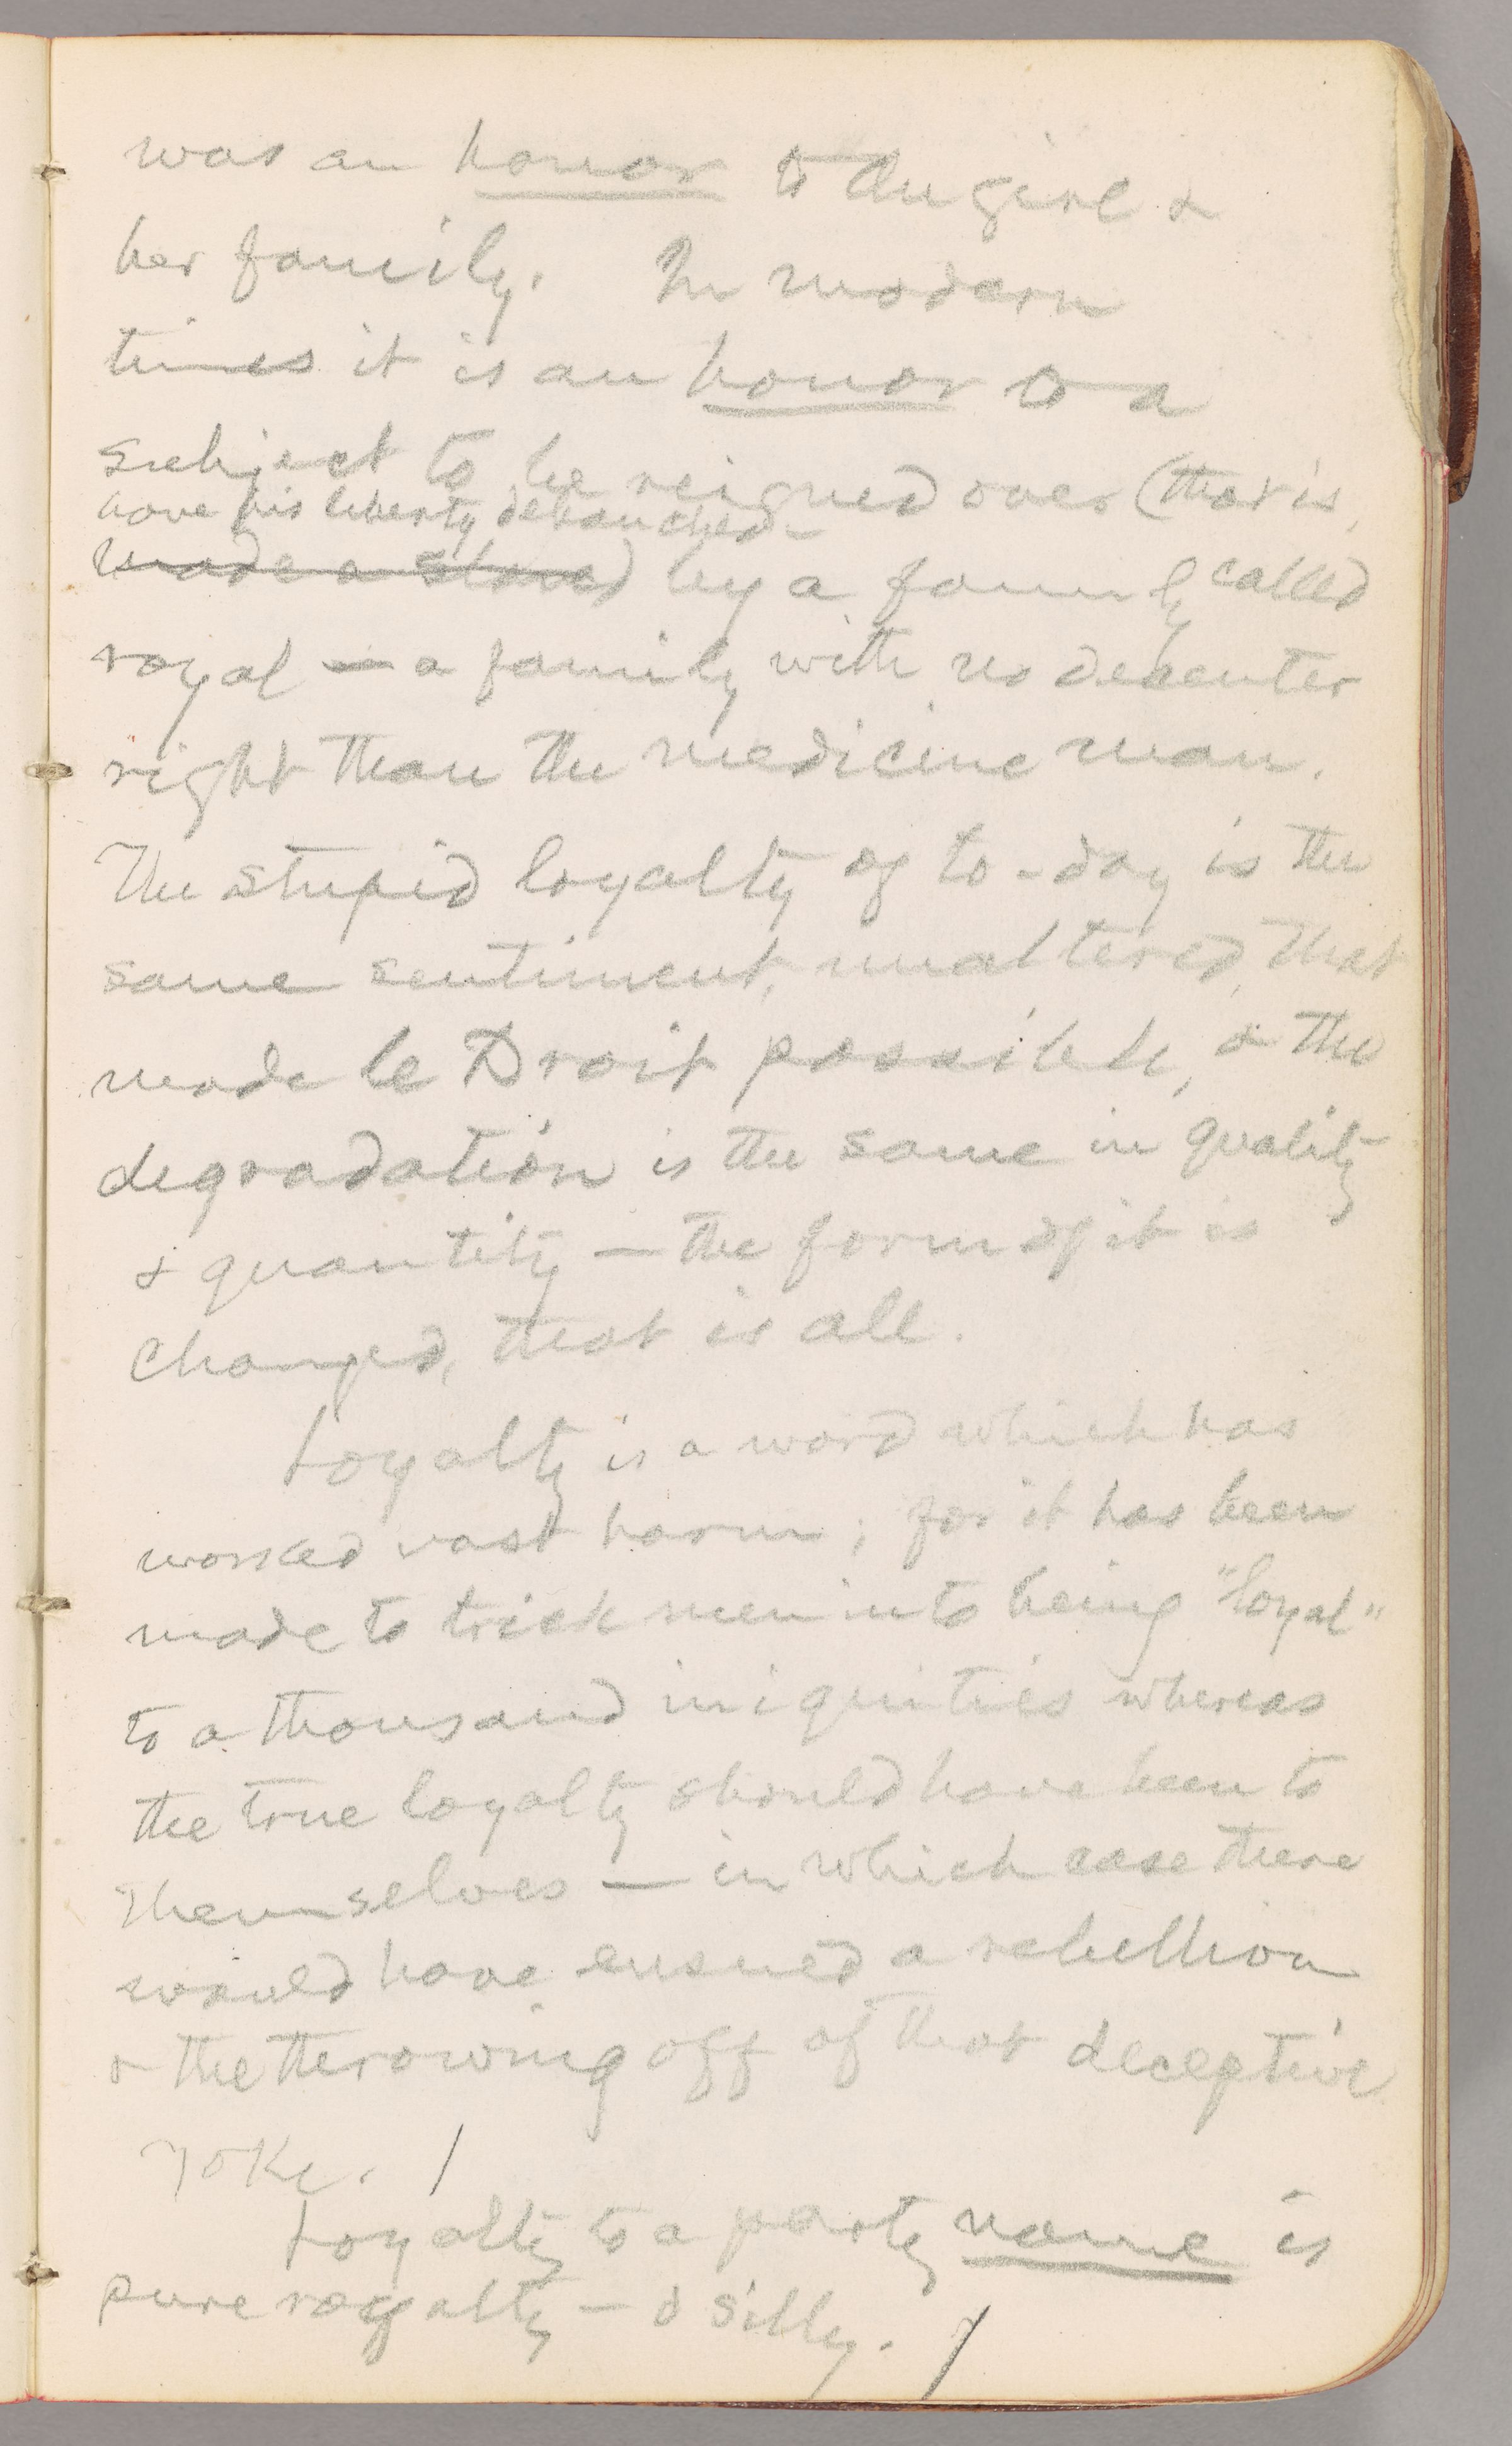 was an honor to the girl &
her family. In modern
times it is an honor to a
subject to be reigned over (that is,
have his liberty debauched
made a slave) by a family called
royal — a family with no decenter
right than the medicine man.
The stupid loyalty of to-day is the
same sentiment, unaltered, that
made le Droit possible, & the
degradation is the same in quality
& quantity — the form of it is
changed, that is all.
Loyalty is a word which has
worked vast harm; for it has been
made to trick men into being "loyal"
to a thousand iniquities whereas
the true loyalty should have been to
themselves — in which case there
would have ensued a rebellion
& the throwing off of that deceptive
yoke. /
Loyalty to a party name is
pure royalty — & silly. /